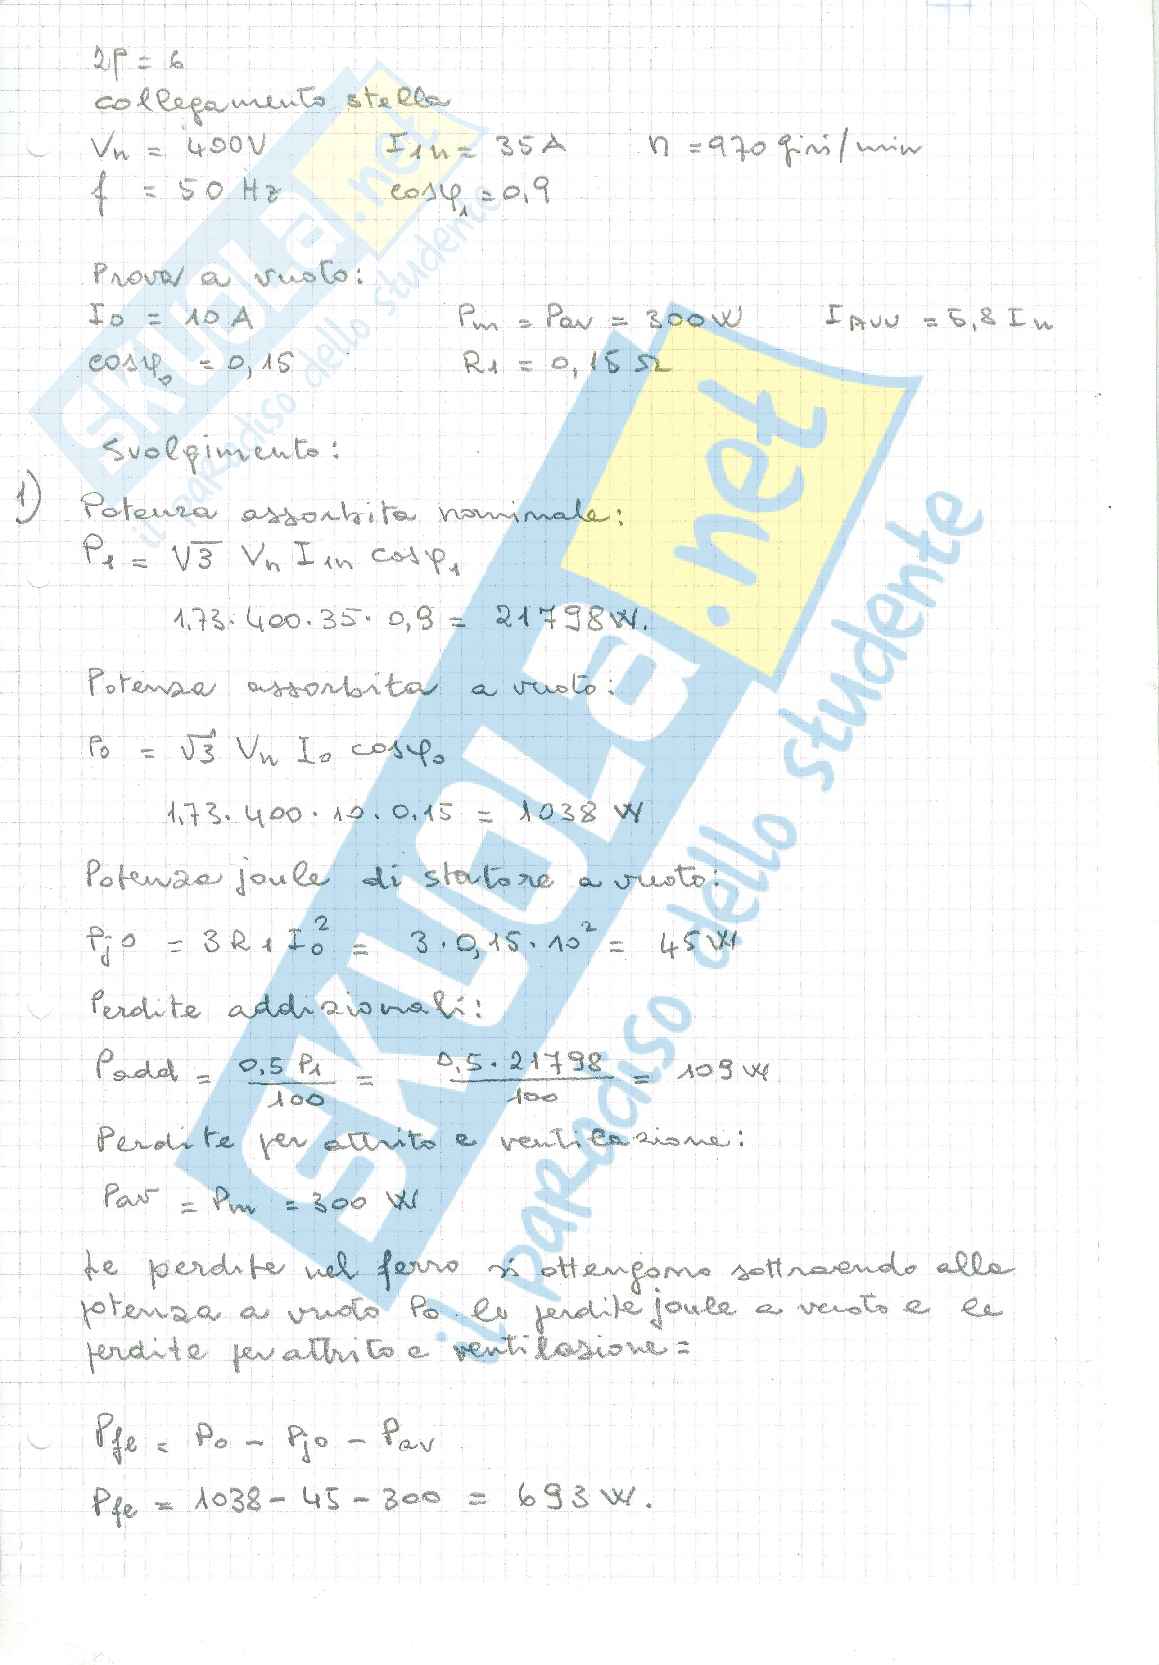 2p = 6
collegamento stella
Vn = 400V I1n = 35 A n = 970 giri/min
f = 50 Hz cosφ1 = 0,9
Prova a vuoto:
I0 = 10 A Pm = Pav = 300W IAVV = 5,8 In
cosφ0 = 0,15 R1 = 0,15 Ω
Svolgimento:
1)
Potenza assorbita nominale:
P1 = √3 Vn I1n cosφ1
1,73 · 400 · 35 · 0,9 = 21798 W.
Potenza assorbita a vuoto:
P0 = √3 Vn I0 cosφ0
1,73 · 400 · 10 · 0,15 = 1038 W
Potenza joule di statore a vuoto:
Pj0 = 3 R1 I0² = 3 · 0,15 · 10² = 45 W
Perdite addizionali:
Padd = 0,5 P1 / 100 = 0,5 · 21798 / 100 = 109 W
Perdite per attrito e ventilazione:
Pav = Pm = 300 W
Le perdite nel ferro si ottengono sottraendo alla
potenza a vuoto P0 le perdite joule a vuoto e le
perdite per attrito e ventilazione =
Pfe = P0 - Pj0 - Pav
Pfe = 1038 - 45 - 300 = 693 W.
SKUOLA.net
il paradiso dello studente
SKUOLA.net
il paradiso dello studente